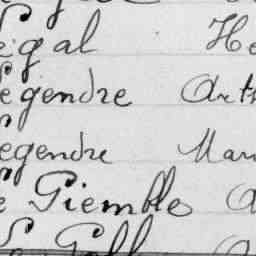 égal He
egendre Art
egendre Mar
e Giemble A
Le Gall